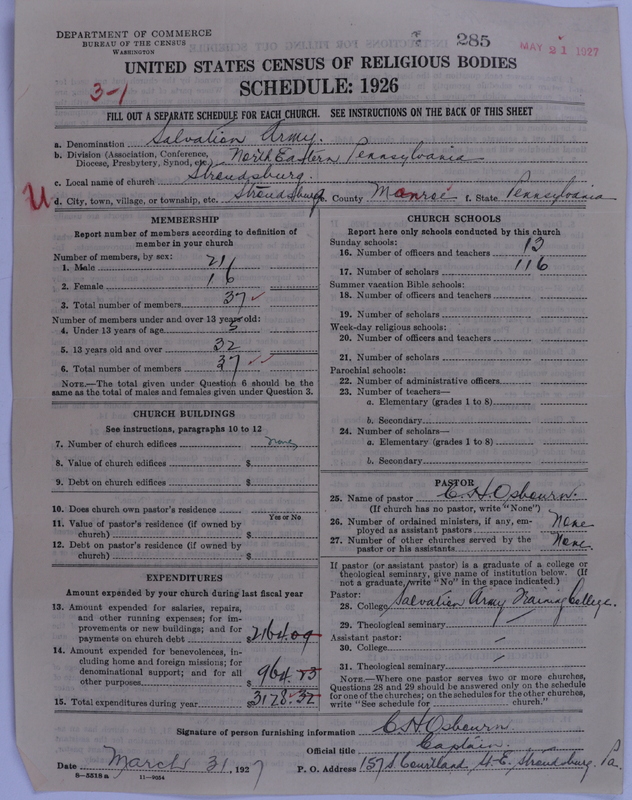 DEPARTMENT OF COMMERCE
BUREAU OF THE CENSUS
WASHINGTON
285
MAY 21 1927
UNITED STATES CENSUS OF RELIGIOUS BODIES
SCHEDULE: 1926
3-1
FILL OUT A SEPARATE SCHEDULE FOR EACH CHURCH. SEE INSTRUCTIONS ON THE BACK OF THIS SHEET
a. Denomination Salvation Army.
b. Division (Association, Conference, Diocese, Presbytery, Synod, etc.) North Eastern Pennsylvania
c. Local name of church Stroudsburg.
U
d. City, town, village, or township, etc. Stroudsburg e. County Monroe f. State Pennsylvania
MEMBERSHIP
Report number of members according to definition of
member in your church
Number of members, by sex:
1. Male 21
2. Female 16
3. Total number of members 37
Number of members under and over 13 years old:
4. Under 13 years of age 5
5. 13 years old and over 32
6. Total number of members 37
NOTE.—The total given under Question 6 should be
same as the total of males and females given under Question 3.
CHURCH BUILDINGS
See instructions, paragraphs 10 to 12
7. Number of church edifices none
8. Value of church edifices $
9. Debt on church edifices $
10. Does church own pastor's residence
Yes or No
11. Value of pastor's residence (if owned by
church) $
12. Debt on pastor's residence (if owned by
church) $
EXPENDITURES
Amount expended by your church during last fiscal year
13. Amount expended for salaries, repairs,
and other running expenses; for im-
provements or new buildings; and for
payments on church debt $
14. Amount expended for benevolences, in-
cluding home and foreign missions; for
denominational support; and for all
other purposes $
15. Total expenditures during year $
CHURCH SCHOOLS
Report here only schools conducted by this church
Sunday schools:
16. Number of officers and teachers 13
17. Number of scholars 116
Summer vacation Bible schools:
18. Number of officers and teachers
19. Number of scholars
Week-day religious schools:
20. Number of officers and teachers
21. Number of scholars
Parochial schools:
22. Number of administrative officers
23. Number of teachers—
a. Elementary (grades 1 to 8)
b. Secondary
24. Number of scholars—
a. Elementary (grades 1 to 8)
b. Secondary
PASTOR
25. Name of pastor C. H. Osbourn.
(If church has no pastor, write "None")
26. Number of ordained ministers, if any, em-
ployed as assistant pastors None
27. Number of other churches served by the
pastor or his assistants None.
If pastor (or assistant pastor) is a graduate of a college or
theological seminary, give name of institution below. (If
not a graduate, write "No" in the space indicated.)
Pastor:
28. College Salvation Army Training College.
29. Theological seminary
Assistant pastor:
30. College
31. Theological seminary
NOTE.—Where one pastor serves two or more churches,
Questions 28 and 29 should be answered only on the schedule
for one of the churches; on the schedules for the other churches,
write "See schedule for church."
Signature of person furnishing information C H Osbourn.
Official title Captain.
Date March 31, 1927 P. O. Address 157 S. Courtland St. E. Stroudsburg. Pa.
8—5518 a 11—9054